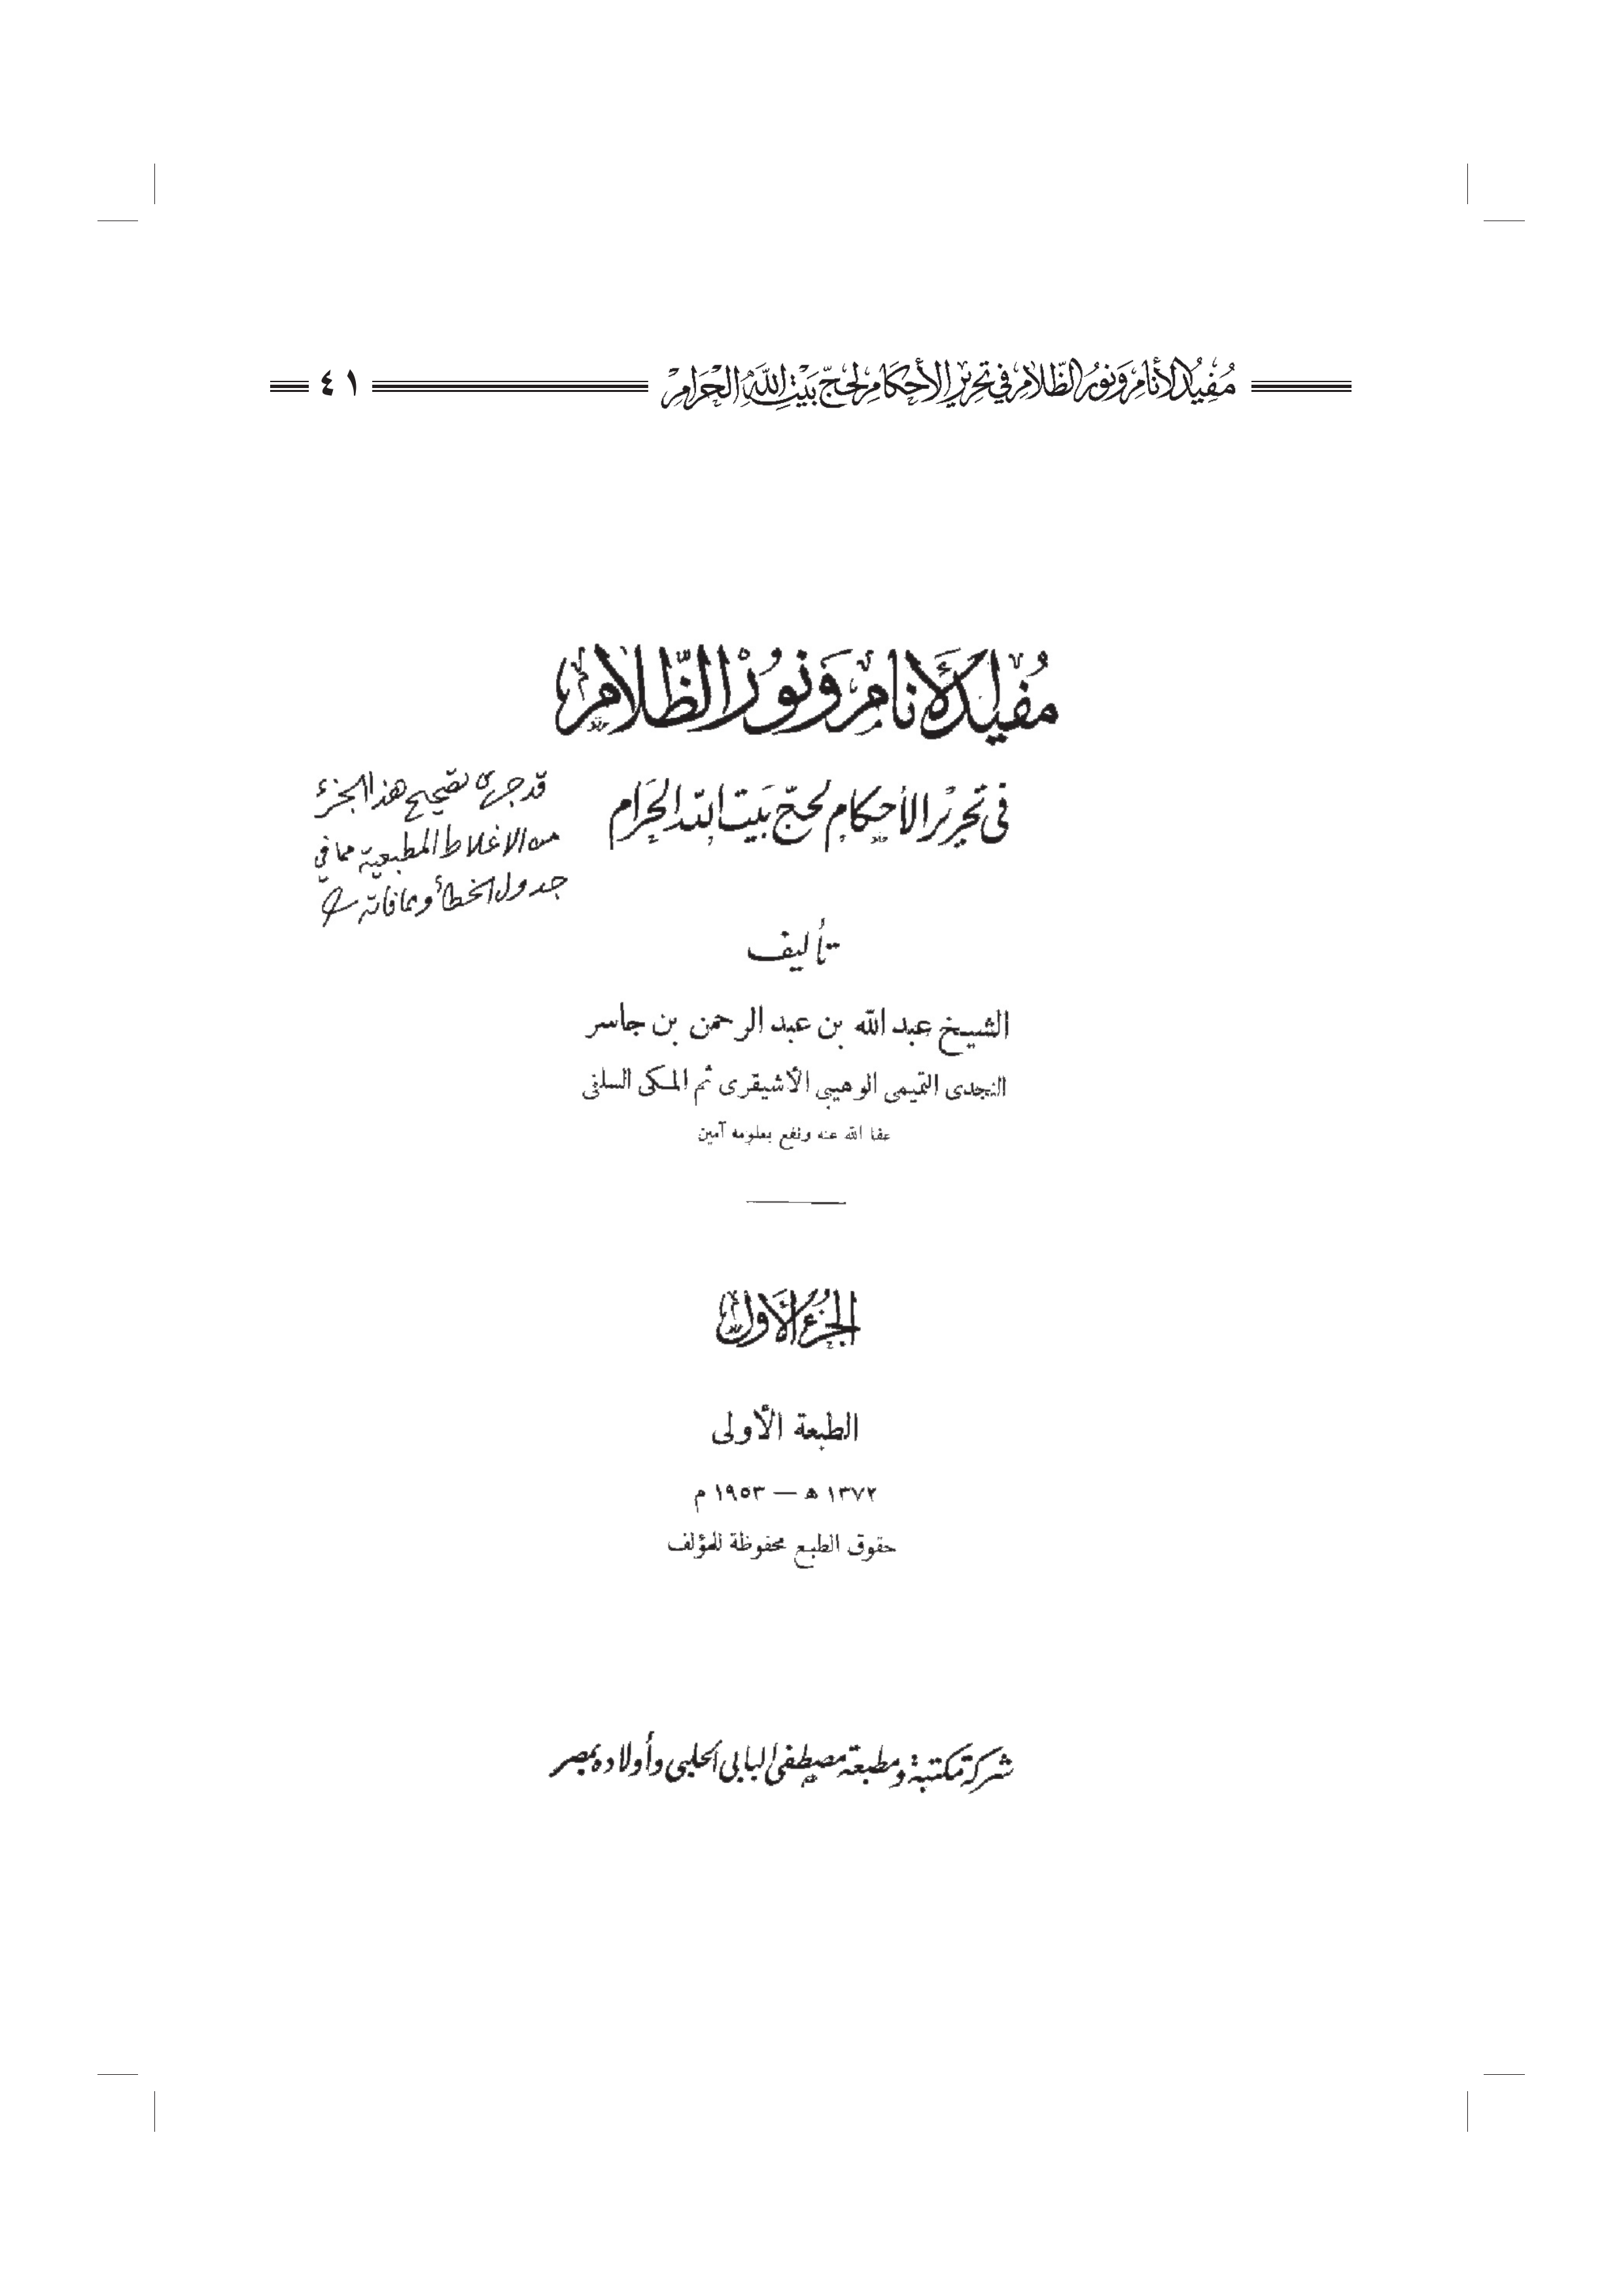 مُفِيدُ الأَنَامِ وَنُورُ الظَّلَامِ فِي تَحْرِيرِ الأَحْكَامِ لِحَجِّ بَيْتِ اللَّهِ الحَرَامِ ٤١
مُفيدُ الأَنامِ وَنورُ الظَّلامِ
فى تحرير الأحكام لحجّ بَيت الله الحَرام
قد جرى تصحيح هذا الجزء
من الاغلاط المطبعية مما في
جدول الخطأ ومما فاته
تأليف
الشيخ عبد الله بن عبد الرحمن بن جاسر
النجدى التميمى الوهيبى الأشيقرى ثم المكى السلفى
عفا الله عنه ونفع بعلومه آمين
الجزء الأول
الطبعة الأولى
١٣٧٢ ه — ١٩٥٣ م
حقوق الطبع محفوظة للمؤلف
شركة مكتبة ومطبعة مصطفى البابى الحلبى وأولاده بمصر